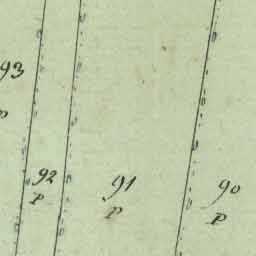 93
p
92
p
91
p
90
p